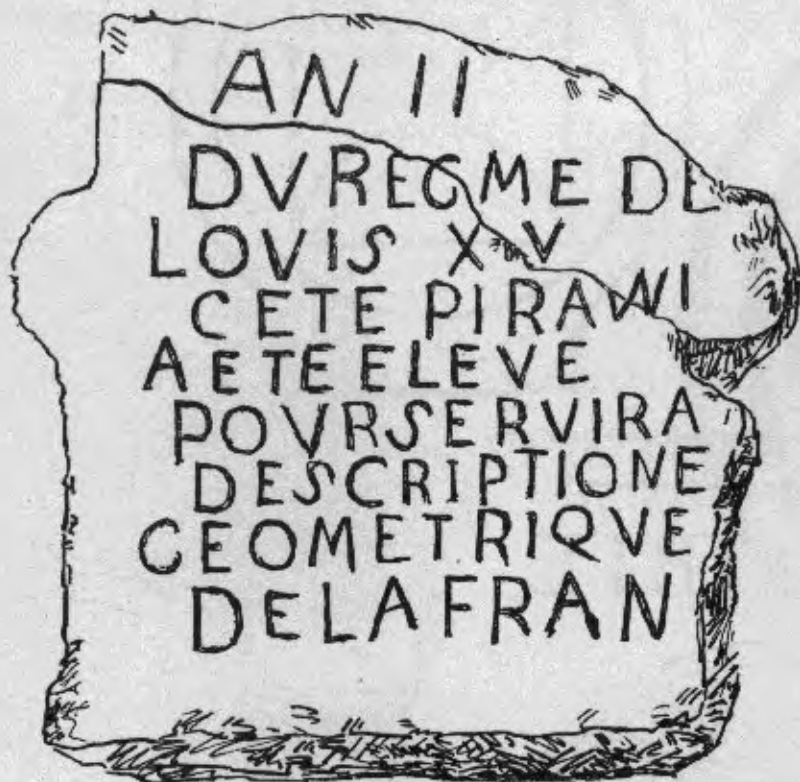 AN II
DVREGME DE
LOVIS XV
CETE PIRAWI
AETEELEVE
POVRSERVIRA
DESCRIPTIONE
GEOMETRIQVE
DELAFRAN